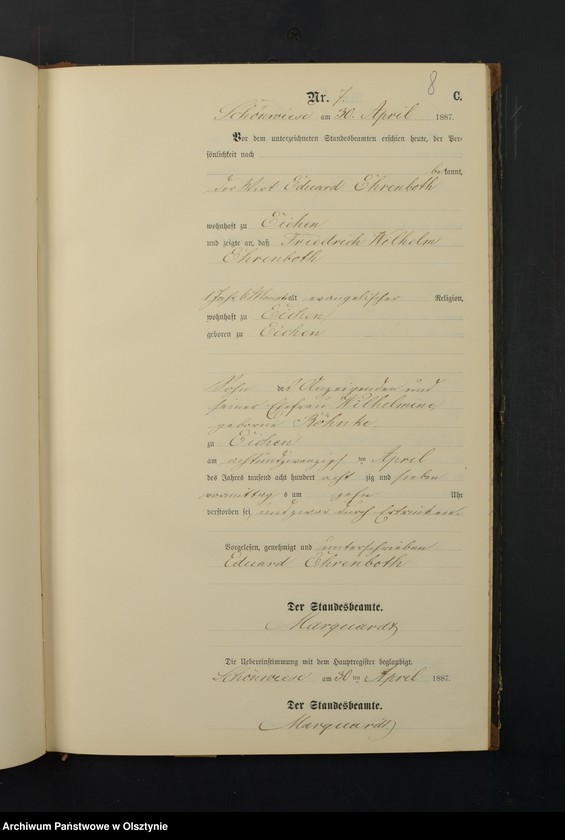 8
Nr. 7. C.
Schönwiese am 30. April 1887.
Vor dem unterzeichneten Standesbeamten erschien heute, der Per-
sönlichkeit nach
bekannt,
der Wirt Eduard Ehrenboth
wohnhaft zu Eichen
und zeigte an, daß Friedrich Wilhelm
Ehrenboth
1 Jahr 6 Monat alt evangelischer Religion,
wohnhaft zu Eichen
geboren zu Eichen
Sohn des Anzeigenden und
seiner Ehefrau Wilhelmine
geborene Böhnke
zu Eichen
am achtundzwanzigsten April
des Jahres tausend acht hundert achtzig und sieben
vormittags um zehn Uhr
verstorben sei, und zwar durch Ertrinken.
Vorgelesen, genehmigt und unterschrieben
Eduard Ehrenboth
Der Standesbeamte.
Marquardt
Die Uebereinstimmung mit dem Hauptregister beglaubigt.
Schönwiese am 30ten April 1887.
Der Standesbeamte.
Marquardt
Archiwum Państwowe w Olsztynie